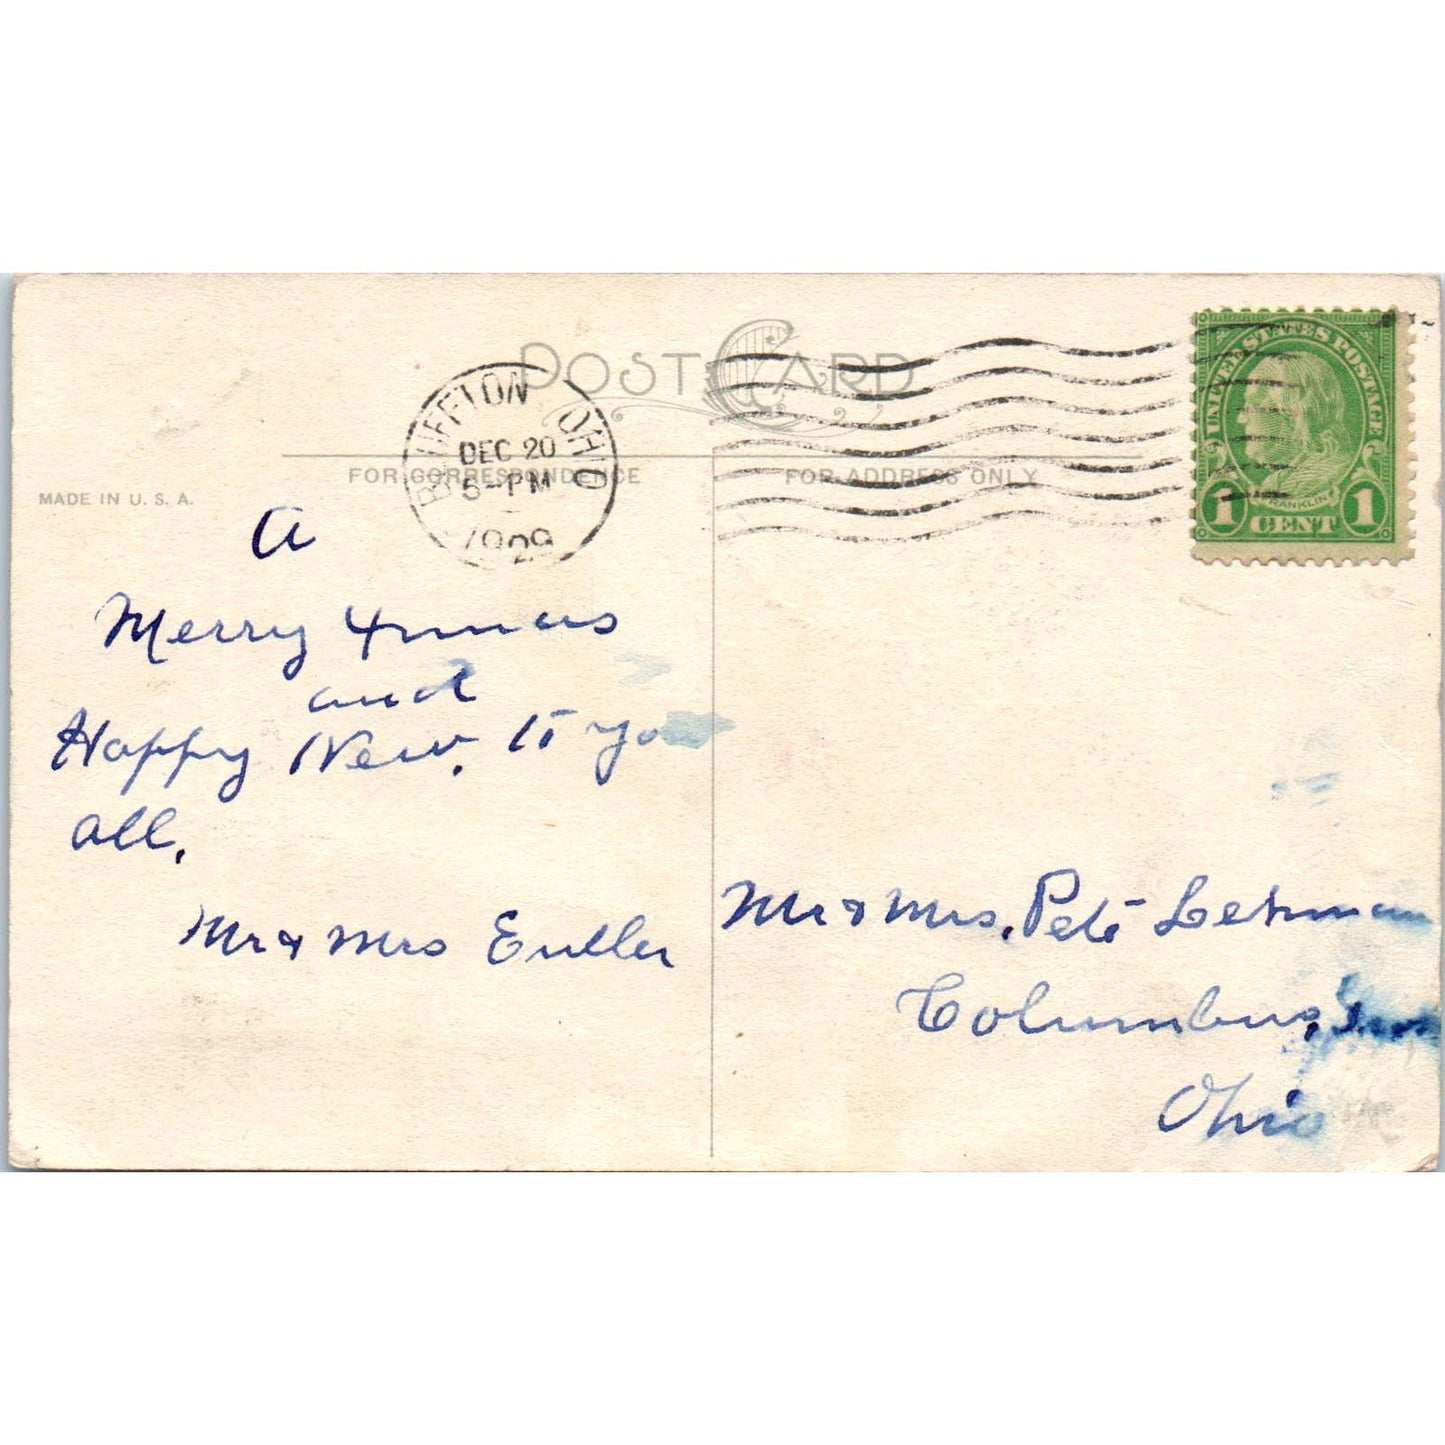 POST CARD
BLUFFTON OHIO
DEC 20
5-PM
1929
FOR CORRESPONDENCE
FOR ADDRESS ONLY
MADE IN U.S.A.
UNITED STATES POSTAGE
FRANKLIN
1 CENT 1
A
Merry Xmas
and
Happy New. to you
all.
Mr & Mrs
Mr & Mrs. Pete Lehman
Columbus,
Ohio